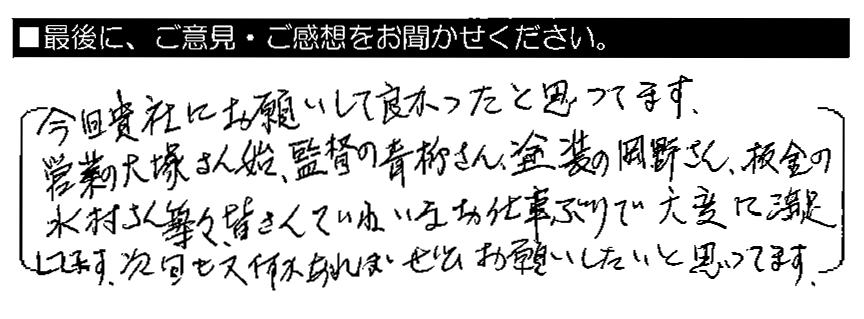 ■最後に、ご意見・ご感想をお聞かせください。
今回貴社にお願いして良かったと思ってます。
営業の大塚さん始、監督の青柳さん、塗装の岡野さん、板金の
水村さん等々、皆さんていねいなお仕事ぶりで大変に満足
してます。次回も又何かあればぜひお願いしたいと思ってます。